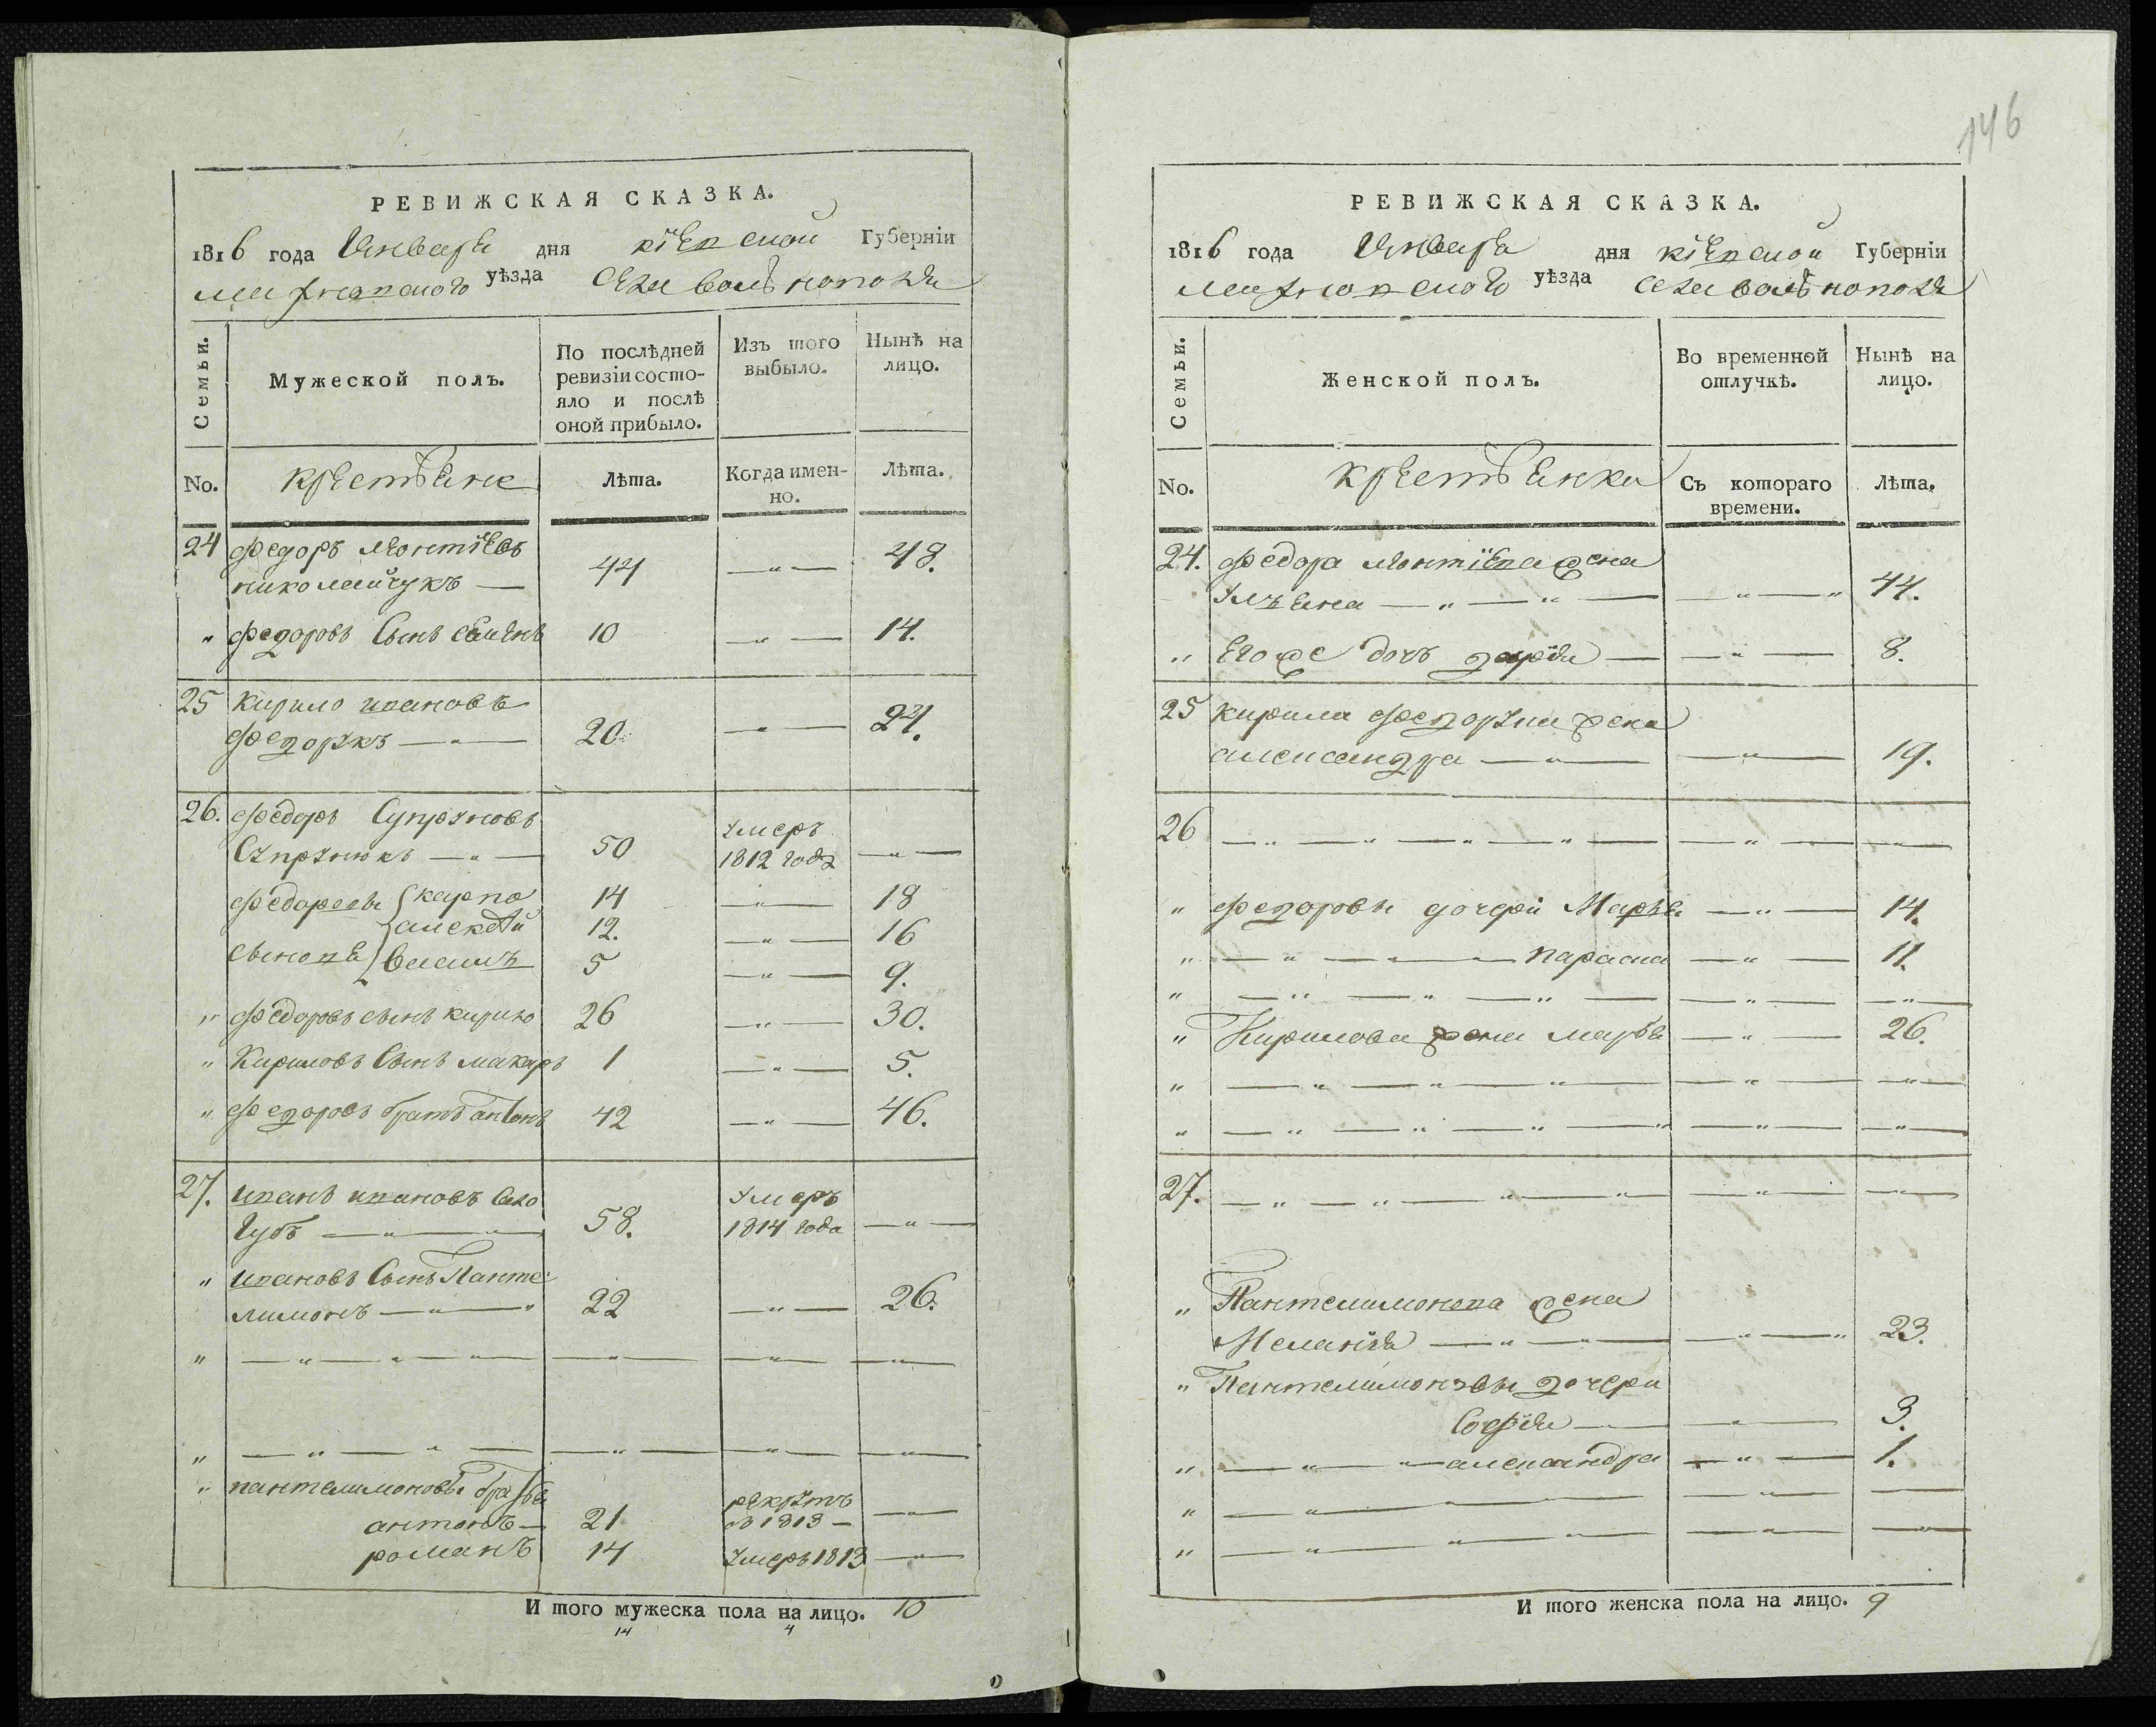 РЕВИЖСКАЯ СКАЗКА.
1816 года Января дня кіевской Губерніи
уѣзда Села
Семьи.
Мужеской полъ.
По послѣдней ревизіи состо-
яло и послѣ
оной прибыло.
Изъ того выбыло.
Нынѣ на лицо.
No. крестьяне Лѣта. Когда имен-
но. Лѣта.
24 федоръ леонтіевъ
николайчукъ — 44 — „ — 48.
„ федоровъ Сынъ семенъ 10 — „ — 14.
25 Кирило ивановъ
федорукъ — „ — 20 — „ — 24.
26. федоръ Супруновъ
Супрунюкъ — „ — 50 умеръ
1812 года — „ —
федоровы сыновья { карпо 14 — „ — 18
алексѣй 12. — „ — 16
василь 5 — „ — 9.
„ федоровъ сынъ кирило 26 — „ — 30.
„ Кириловъ Сынъ макаръ 1 — „ — 5.
„ федоровъ братъ антонъ 42 — „ — 46.
27. иванъ ивановъ
58. умеръ
1814 года — „ —
„ ивановъ Сынъ Панте-
лимонъ — „ — „ 22 — „ — 26.
„ — „ — „ — „ — — „ — — „ — — „ —
„ — „ — „ — — „ — — „ — — „ —
„ пантелимоновы братья
антонъ — 21 рекрутъ
въ 1813 — — „ —
романъ 14 умеръ 1813 — „ —
И того мужеска пола на лицо. 10
14 4
146
РЕВИЖСКАЯ СКАЗКА.
1816 года Января дня кіевской Губерніи
уѣзда села
Семьи.
Женской полъ.
Во временной
отлучкѣ.
Нынѣ на
лицо.
No. крестьянки Съ котораго
времени. Лѣта.
24. федора леонтіева жена
ульяна — „ — „ — — „ — „ 44.
„ его же дочь — — „ — 8.
25 кирила федорука жена
александра — „ — — „ — 19.
26 — „ — „ — „ — „ — — „ — — „ —
„ федоровы дочери Марья — „ — 14.
„ — „ — „ — параска — „ — 11.
„ — „ — „ — „ — — „ — — „ —
„ Кирилова жена марья — „ — 26.
„ — „ — „ — „ — — „ — — „ —
„ — „ — „ — „ — „ — „ — — „ —
27. — „ — „ — „ — „ — — „ — — „ —
„ Пантелимонова жена
Меланія — „ — „ — — „ — „ 23.
„ Пантелимоновы дочери
Софія — — „ — 3.
„ — „ — „ александра — „ — 1.
„ — „ — „ — — „ — — „ —
„ — „ — „ — — „ — — „ —
И того женска пола на лицо. 9